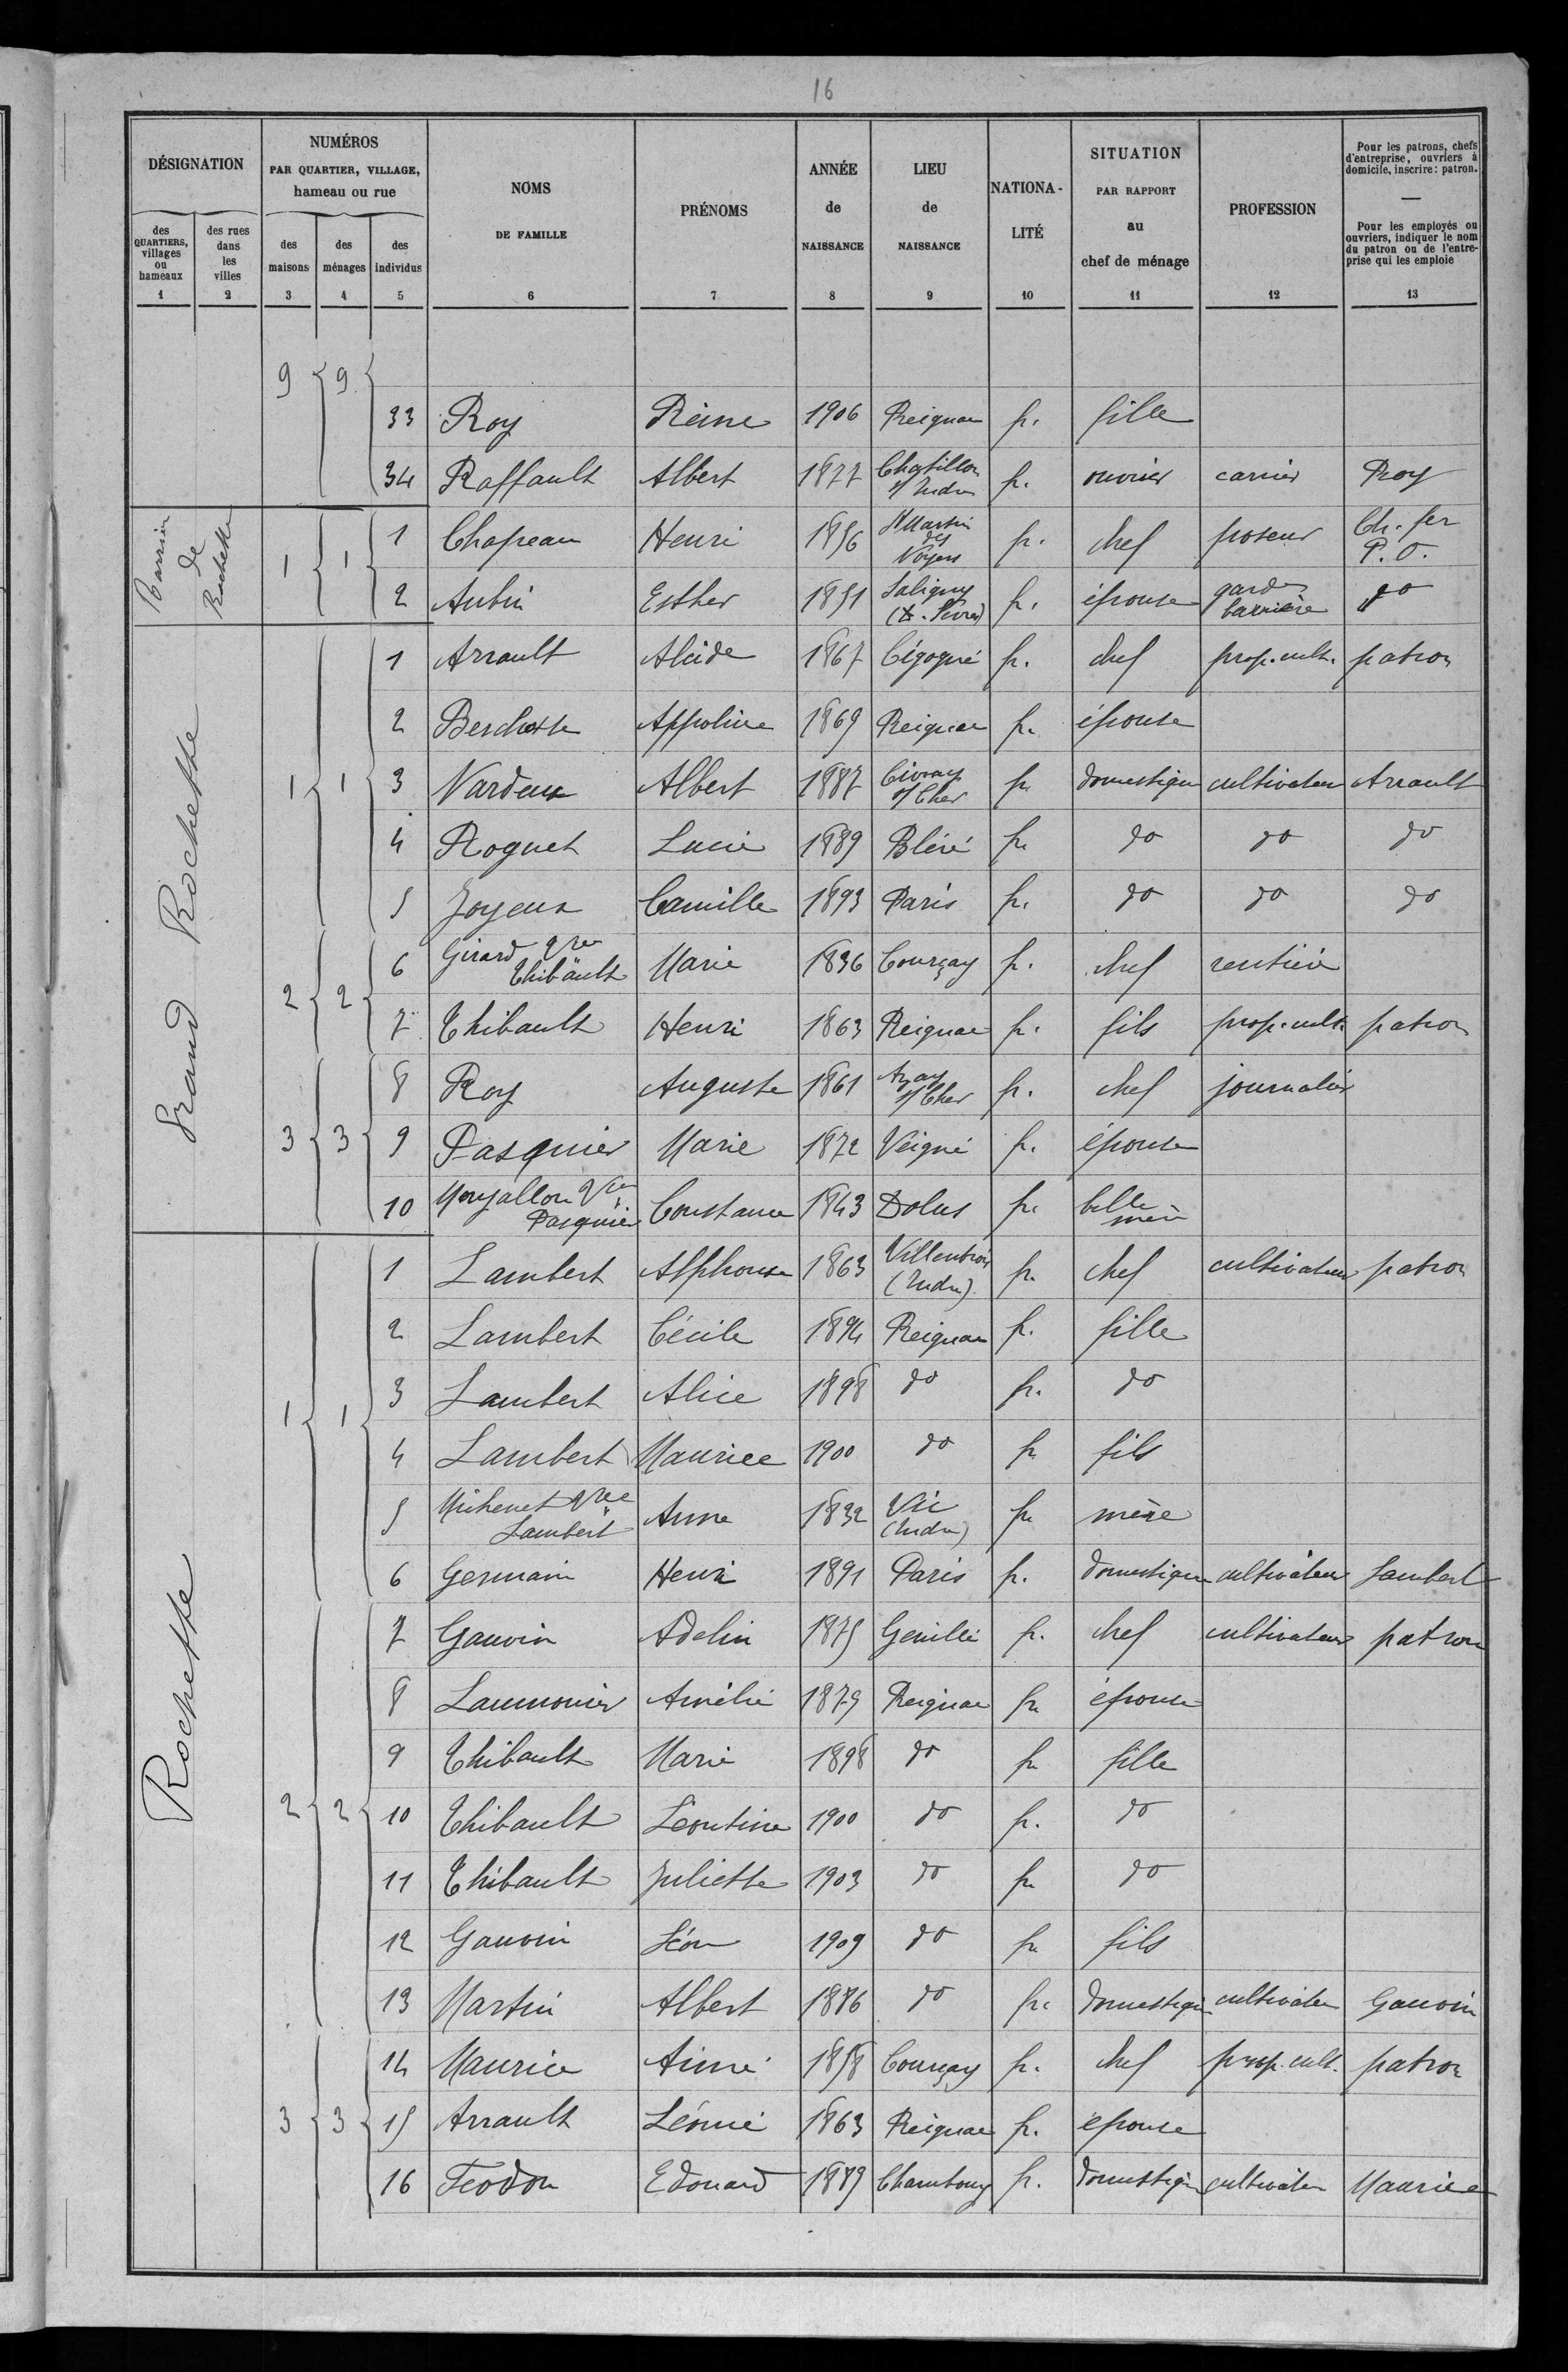 16
DÉSIGNATION
NUMÉROS
PAR QUARTIER, VILLAGE,
hameau ou rue
NOMS
DE FAMILLE
PRÉNOMS
ANNÉE
de
NAISSANCE
LIEU
de
NAISSANCE
NATIONA-
LITÉ
SITUATION
PAR RAPPORT
au
chef de ménage
PROFESSION
Pour les patrons, chefs
d'entreprise, ouvriers à
domicile, inscrire: patron.
Pour les employés ou
ouvriers, indiquer le nom
du patron ou de l'entre-
prise qui les emploie
des
QUARTIERS,
villages
ou
hameaux
des rues
dans
les
villes
des
maisons
des
ménages
des
individus
1 2 3 4 5 6 7 8 9 10 11 12 13
9 9
33 Roy Reine 1906 Reignac fr. fille
34 Raffault Albert 1877 Chatillon s/ Indre fr. ouvrier carrier Roy
Barrière de Rochette
1 1
1 Chapeau Henri 1856 St Martin des Noyers fr. chef poseur Ch. fer P.O.
2 Aubin Esther 1851 Saligny (D. Sèvres) fr. épouse garde barrière do
Grand Rochette
1 1
1 Arrault Alcide 1867 Cigogné fr. chef prop. cult. patron
2 Berchotte Appoline 1869 Reignac fr. épouse
3 Nardeux Albert 1887 Civray s/ Cher fr domestique cultivateur Arrault
4 Roguet Lucie 1889 Bléré fr do do do
5 Joyeux Camille 1893 Paris fr. do do do
2 2
6 Girard Vve Thibault Marie 1836 Courçay fr. chef rentière
7 Thibault Henri 1863 Reignac fr. fils prop. cult. patron
3 3
8 Roy Auguste 1861 Azay s/ Cher fr. chef journalier
9 Pasquier Marie 1872 Veigné fr. épouse
10 Vve Pasquier Constance 1843 Dolus fr belle mère
Rochette
1 1
1 Lambert Alphonse 1863 Villentrois (Indre) fr. chef cultivateur patron
2 Lambert Cécile 1894 Reignac fr. fille
3 Lambert Alice 1898 do fr. do
4 Lambert Maurice 1900 do fr fils
5 Michenet Vve Lambert Anne 1832 Vic (Indre) fr mère
6 Germain Henri 1891 Paris fr. domestique cultivateur Lambert
2 2
7 Gauvin Adelin 1875 Genillé fr. chef cultivateur patron
8 Laumonier Amélie 1879 Reignac fr épouse
9 Thibault Marie 1898 do fr fille
10 Thibault Léontine 1900 do fr. do
11 Thibault Juliette 1903 do fr do
12 Gauvin Léon 1909 do fr fils
13 Martin Albert 1886 do fr domestique cultivateur Gauvin
3 3
14 Maurice Aimé 1858 Courçay fr. chef prop. cult. patron
15 Arrault Léonie 1863 Reignac fr. épouse
16 Teodon Edouard 1889 Chambourg fr. domestique cultivateur Maurice